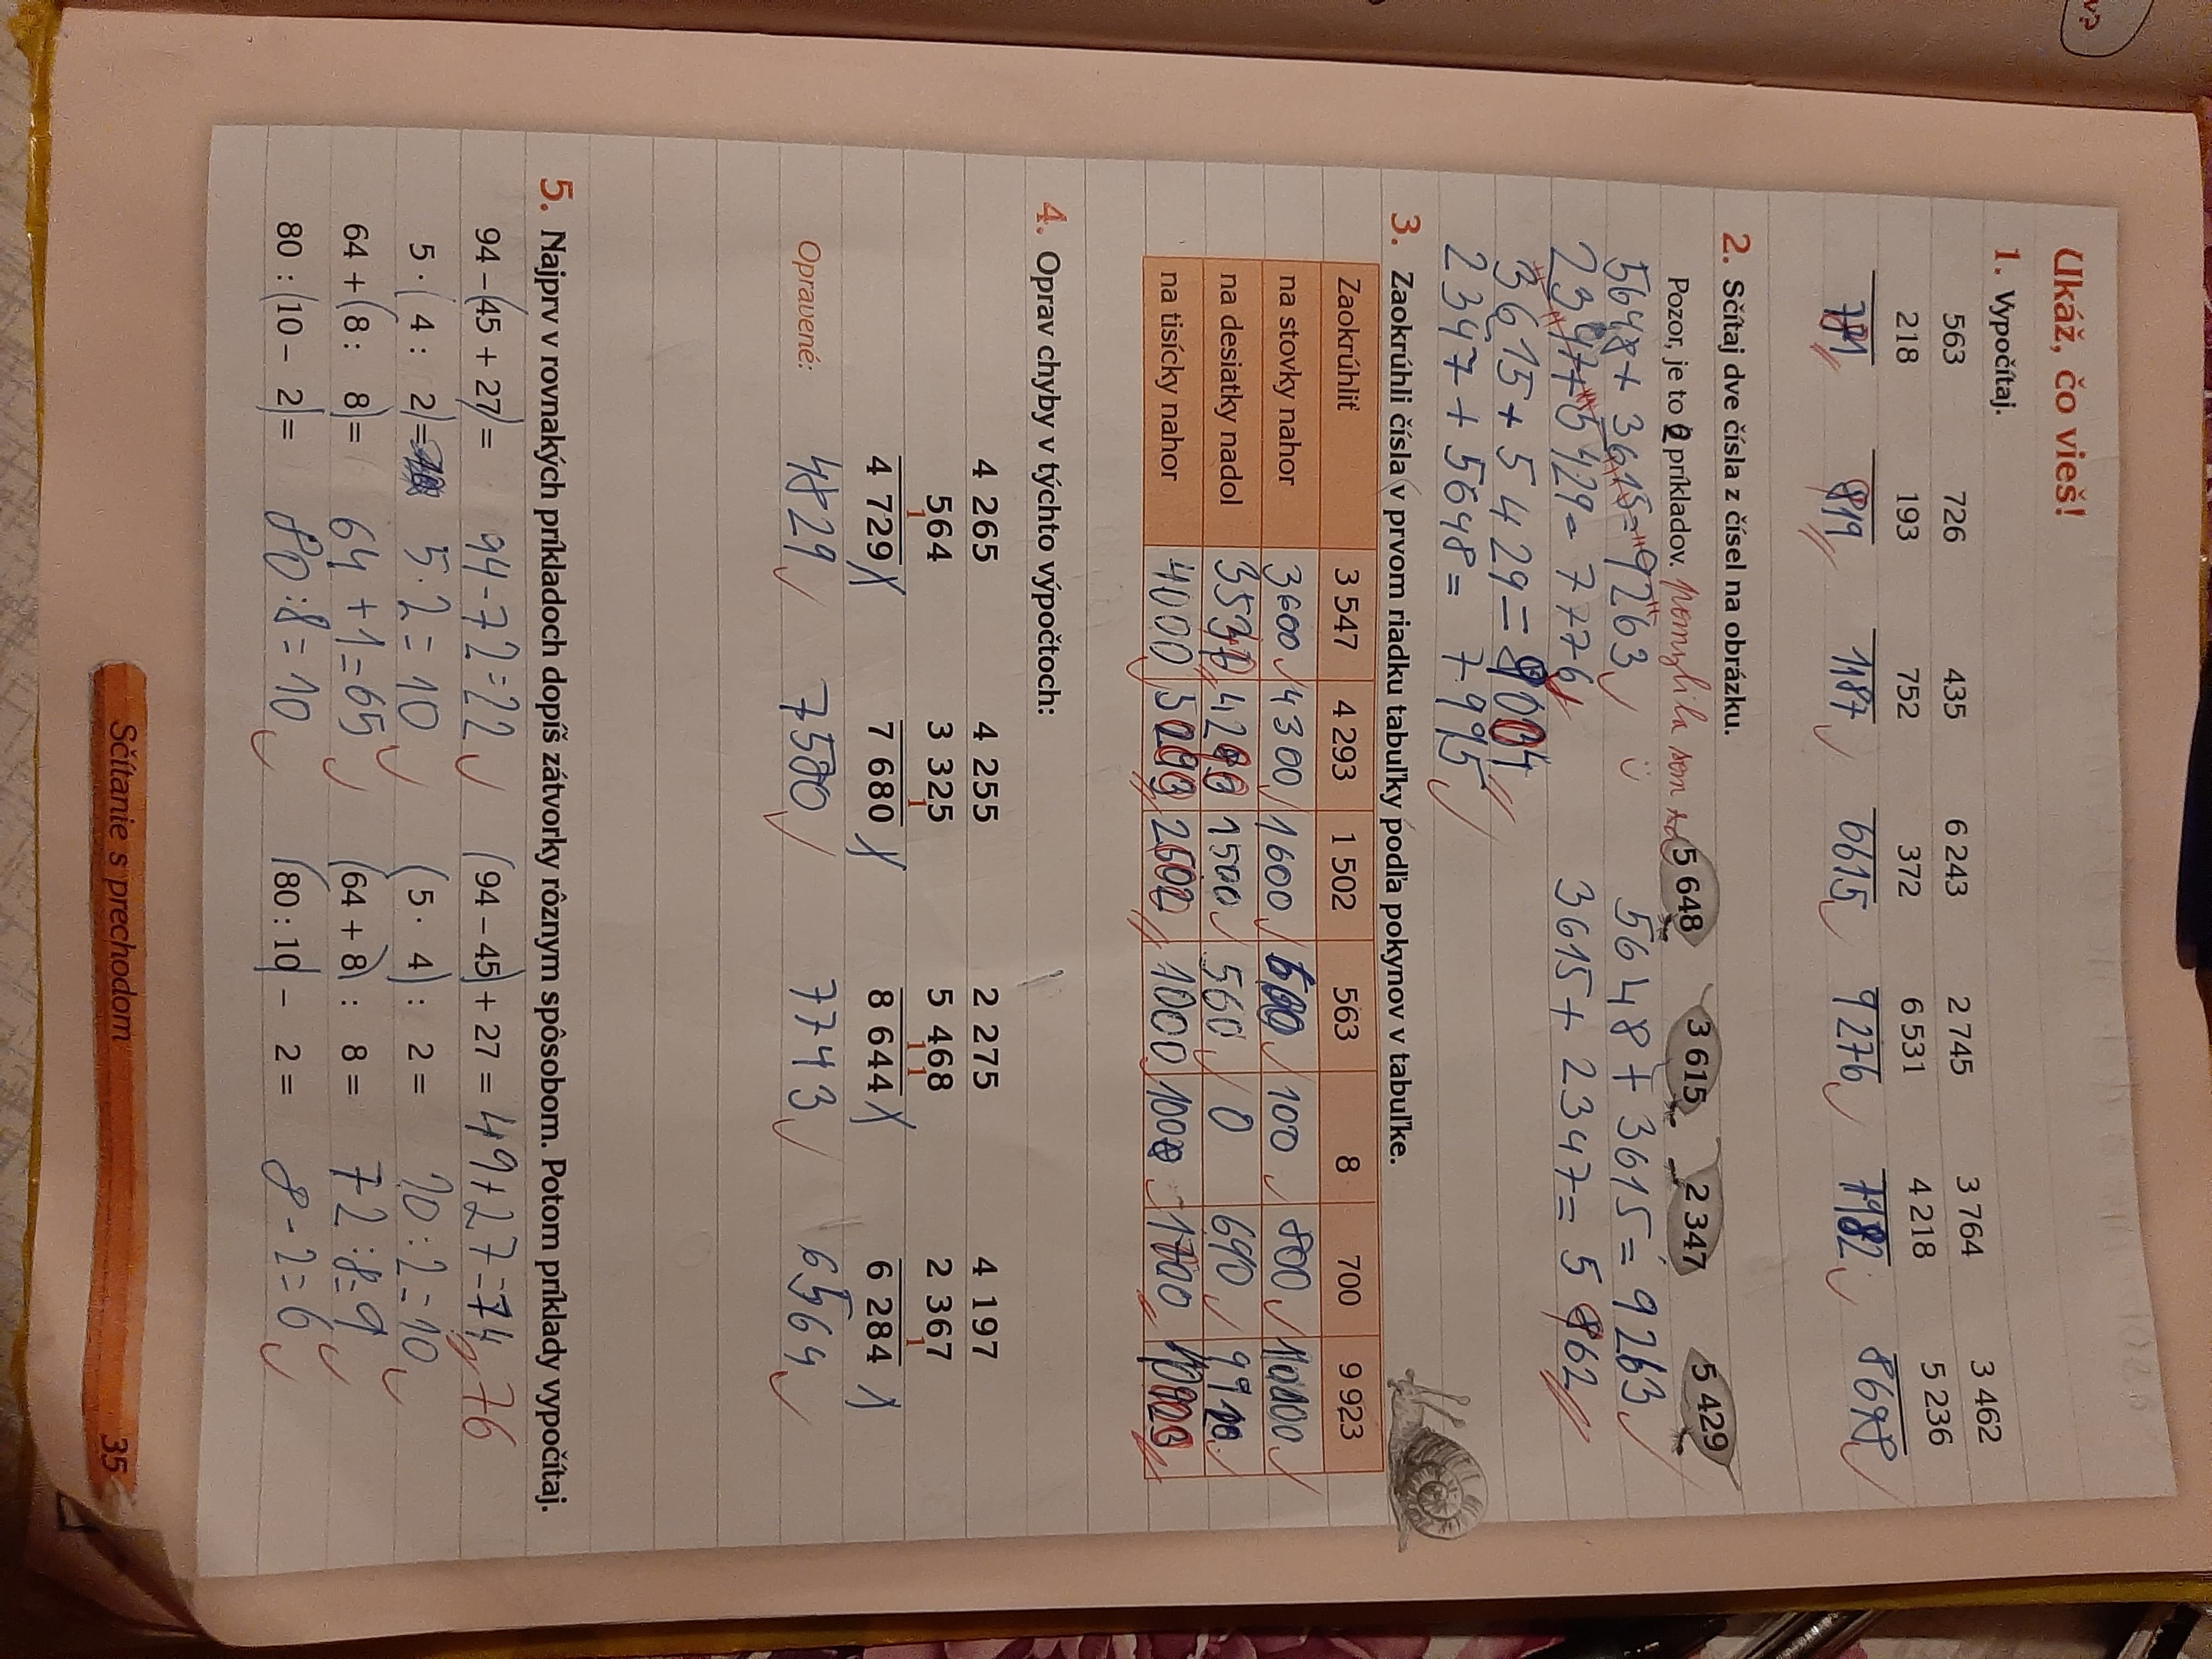 Ukáž, čo vieš!
1. Vypočítaj.
563 726 435 6 243 2 745 3 764 3 462
218 193 752 372 6 531 4 218 5 236
781 919 1187 6615 9276 7982 8698
2. Sčítaj dve čísla z čísel na obrázku.
Pozor, je to príkladov. pomýlila som sa
5 648 3 615 2 347 5 429
5648 + 3615 = 9263 5648 + 3615 = 9263
2347 + 5429 = 7776 3615 + 2347 = 5962
3615 + 5429 = 9044
2347 + 5648 = 7995
3. Zaokrúhli čísla v prvom riadku tabuľky podľa pokynov v tabuľke.
Zaokrúhliť 3 547 4 293 1 502 563 8 700 9 923
na stovky nahor 3600 4300 1600 600 100 800 10000
na desiatky nadol 42 1500 560 0 690 99
na tisícky nahor 4000 1000 1000
4. Oprav chyby v týchto výpočtoch:
4 265 4 255 2 275 4 197
564 3 325 5 468 2 367
1 1 1 1 1
4 729 7 680 8 644 6 284
Opravené: 4829 7580 7743 6564
5. Najprv v rovnakých príkladoch dopíš zátvorky rôznym spôsobom. Potom príklady vypočítaj.
94 – (45 + 27) = 94 - 72 = 22 (94 – 45) + 27 = 49 + 27 = 74 76
5 · (4 : 2) = 5 · 2 = 10 (5 · 4) : 2 = 20 : 2 = 10
64 + (8 : 8) = 64 + 1 = 65 (64 + 8) : 8 = 72 : 8 = 9
80 : (10 – 2) = 80 : 8 = 10 (80 : 10) – 2 = 8 - 2 = 6
Sčítanie s prechodom 35